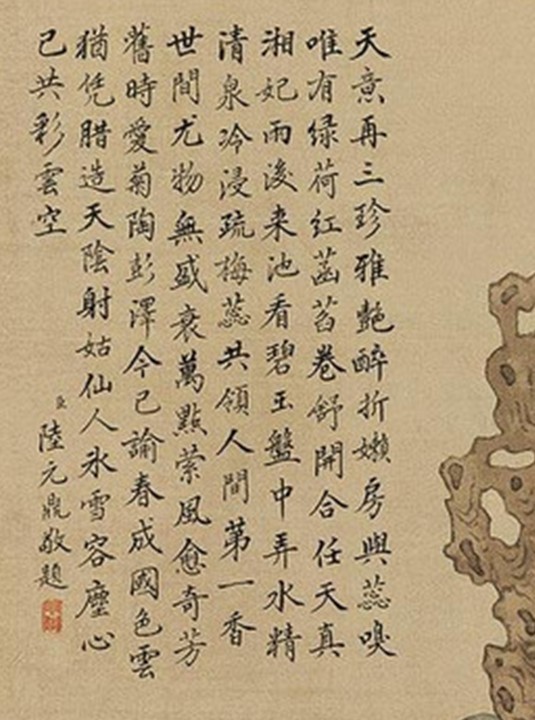 天意再三珍雅艷醉折嬾房與蕊嗅
唯有绿荷红菡萏卷舒開合任天真
湘妃雨後来池看碧玉盤中弄水精
清泉冷浸疏梅蕊共領人間第一香
世間尤物無盛衰萬點縈風愈奇芳
舊時愛菊陶彭澤今已諭春成國色雲
猶凭腊造天陰射姑仙人氷雪容塵心
已共彩雲空
臣陸元鼎敬題